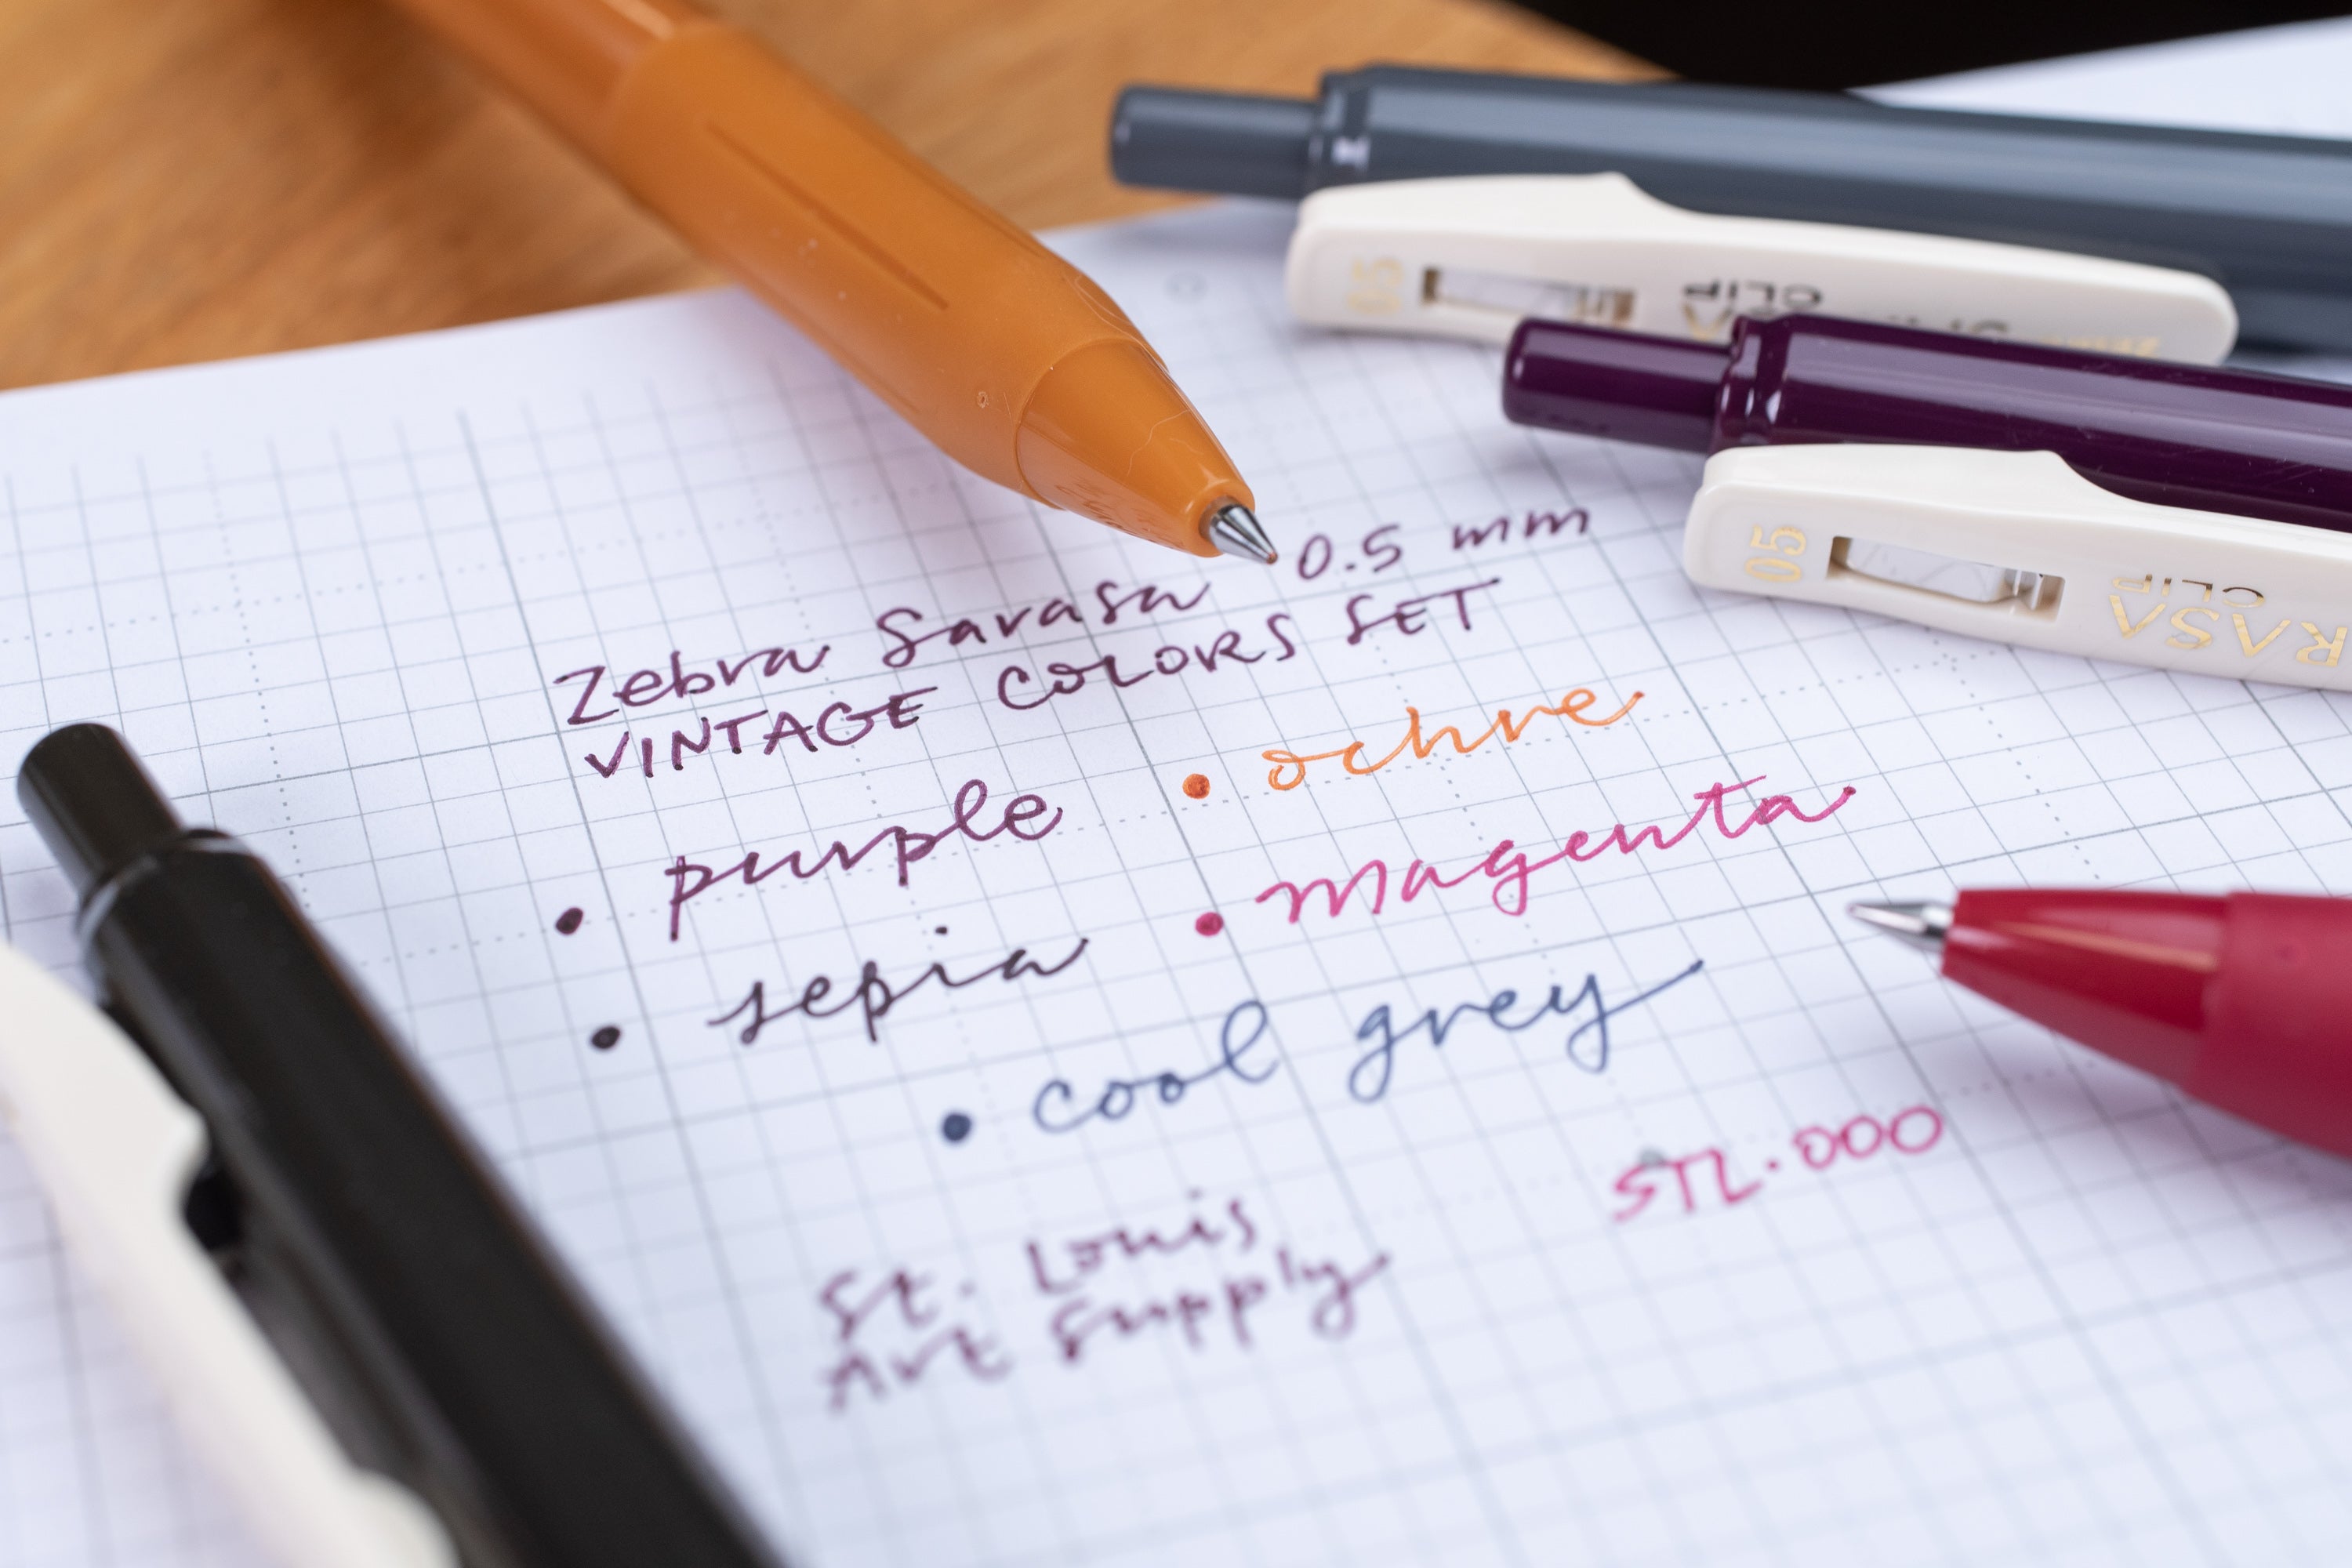 Zebra Sarasa 0.5 mm
VINTAGE COLORS SET
• purple
• ochre
• sepia
• magenta
• cool grey
STL.000
St. Louis
Art Supply
05
CLIP
05
RASA
CLIP